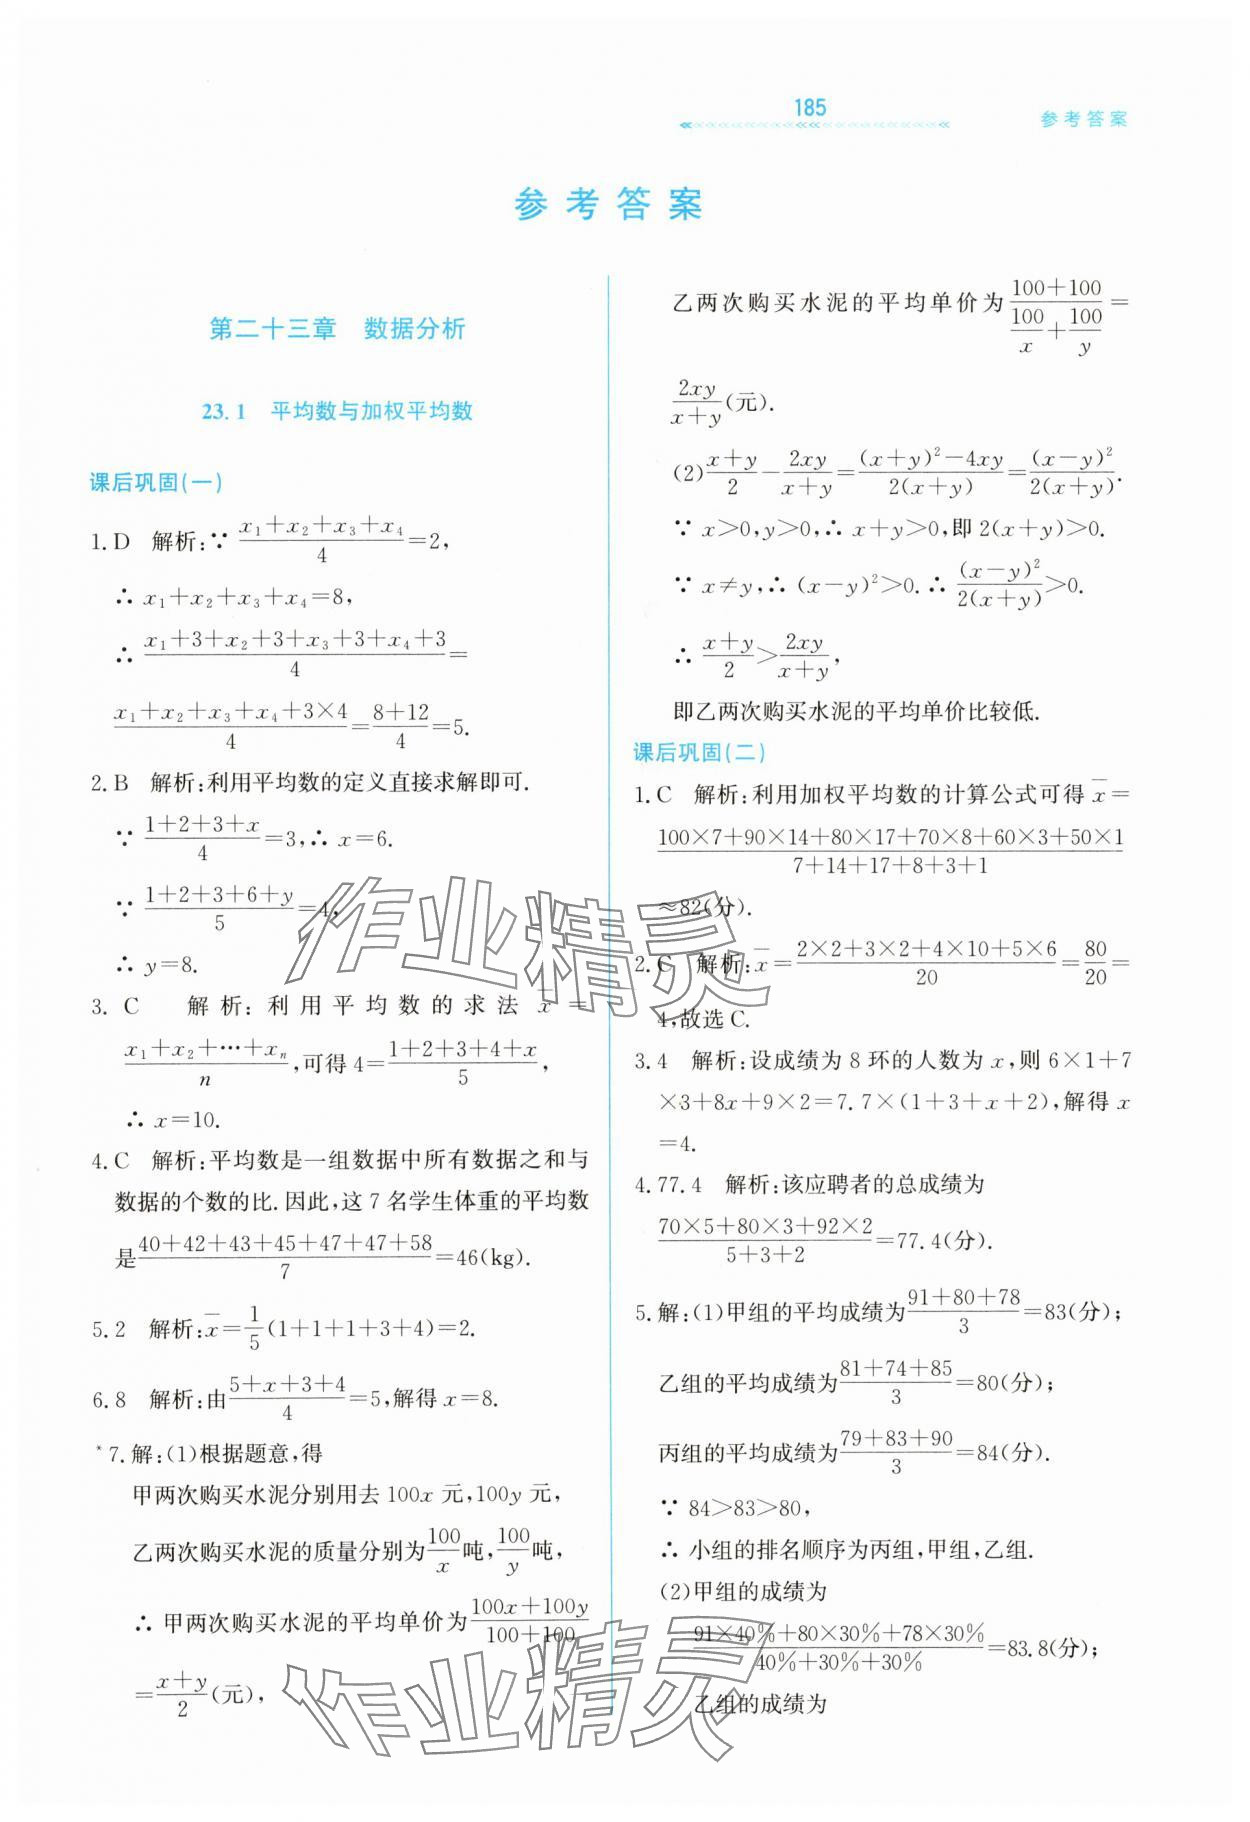 185
参考答案
参考答案
第二十三章 数据分析
23.1 平均数与加权平均数
课后巩固(一)
1.D 解析:∵ (x₁+x₂+x₃+x₄)/4=2,
∴ x₁+x₂+x₃+x₄=8,
∴ (x₁+3+x₂+3+x₃+3+x₄+3)/4=
(x₁+x₂+x₃+x₄+3×4)/4=(8+12)/4=5.
2.B 解析:利用平均数的定义直接求解即可.
∵ (1+2+3+x)/4=3,∴ x=6.
∵ (1+2+3+6+y)/5=4,
∴ y=8.
3. C 解析:利用平均数的求法 x̄=
(x₁+x₂+⋯+xₙ)/n,可得 4=(1+2+3+4+x)/5,
∴ x=10.
4.C 解析:平均数是一组数据中所有数据之和与
数据的个数的比.因此,这 7 名学生体重的平均数
是(40+42+43+45+47+47+58)/7=46(kg).
5.2 解析:x̄=1/5(1+1+1+3+4)=2.
6.8 解析:由(5+x+3+4)/4=5,解得 x=8.
*7.解:(1)根据题意,得
甲两次购买水泥分别用去 100x 元,100y 元,
乙两次购买水泥的质量分别为100/x吨,100/y吨,
∴ 甲两次购买水泥的平均单价为(100x+100y)/(100+100)
=(x+y)/2(元),
乙两次购买水泥的平均单价为(100+100)/(100/x+100/y)=
2xy/(x+y)(元).
(2)(x+y)/2−2xy/(x+y)=((x+y)²−4xy)/(2(x+y))=(x−y)²/(2(x+y)).
∵ x>0,y>0,∴ x+y>0,即 2(x+y)>0.
∵ x≠y,∴ (x−y)²>0.∴ (x−y)²/(2(x+y))>0.
∴ (x+y)/2>2xy/(x+y),
即乙两次购买水泥的平均单价比较低.
课后巩固(二)
1.C 解析:利用加权平均数的计算公式可得 x̄=
(100×7+90×14+80×17+70×8+60×3+50×1)/(7+14+17+8+3+1)
≈82(分).
2.C 解析:x̄=(2×2+3×2+4×10+5×6)/20=80/20=
4,故选 C.
3.4 解析:设成绩为 8 环的人数为 x,则 6×1+7
×3+8x+9×2=7.7×(1+3+x+2),解得 x
=4.
4.77.4 解析:该应聘者的总成绩为
(70×5+80×3+92×2)/(5+3+2)=77.4(分).
5.解:(1)甲组的平均成绩为(91+80+78)/3=83(分);
乙组的平均成绩为(81+74+85)/3=80(分);
丙组的平均成绩为(79+83+90)/3=84(分).
∵ 84>83>80,
∴ 小组的排名顺序为丙组,甲组,乙组.
(2)甲组的成绩为
(91×40%+80×30%+78×30%)/(40%+30%+30%)=83.8(分);
乙组的成绩为
作业精灵
作业精灵